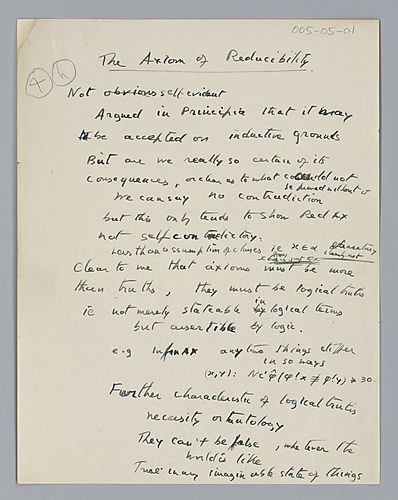 005-05-01
The Axiom of Reducibility
4 h
Not obvious self-evident
Argued in Principia that it may
be accepted on inductive grounds
But are we really so certain of its
consequences, or clear as to what could not
be proved without it
We can say no contradiction
but this only tends to show Red Ax
not self contradictory.
Less than assumption of classes ie x∈α
Clear to me that axioms must be more
than truths, they must be logical truths
ie not merely stateable in logical terms
but assertible by logic.
e.g. Infin Ax any two things differ
in 30 ways
(x,y): Nc'φ̂(φ!x ≢ φ!y) > 30.
Further characteristic of logical truths
necessity or tautology
They can't be false, whatever the
world is like
True in any imaginable state of things